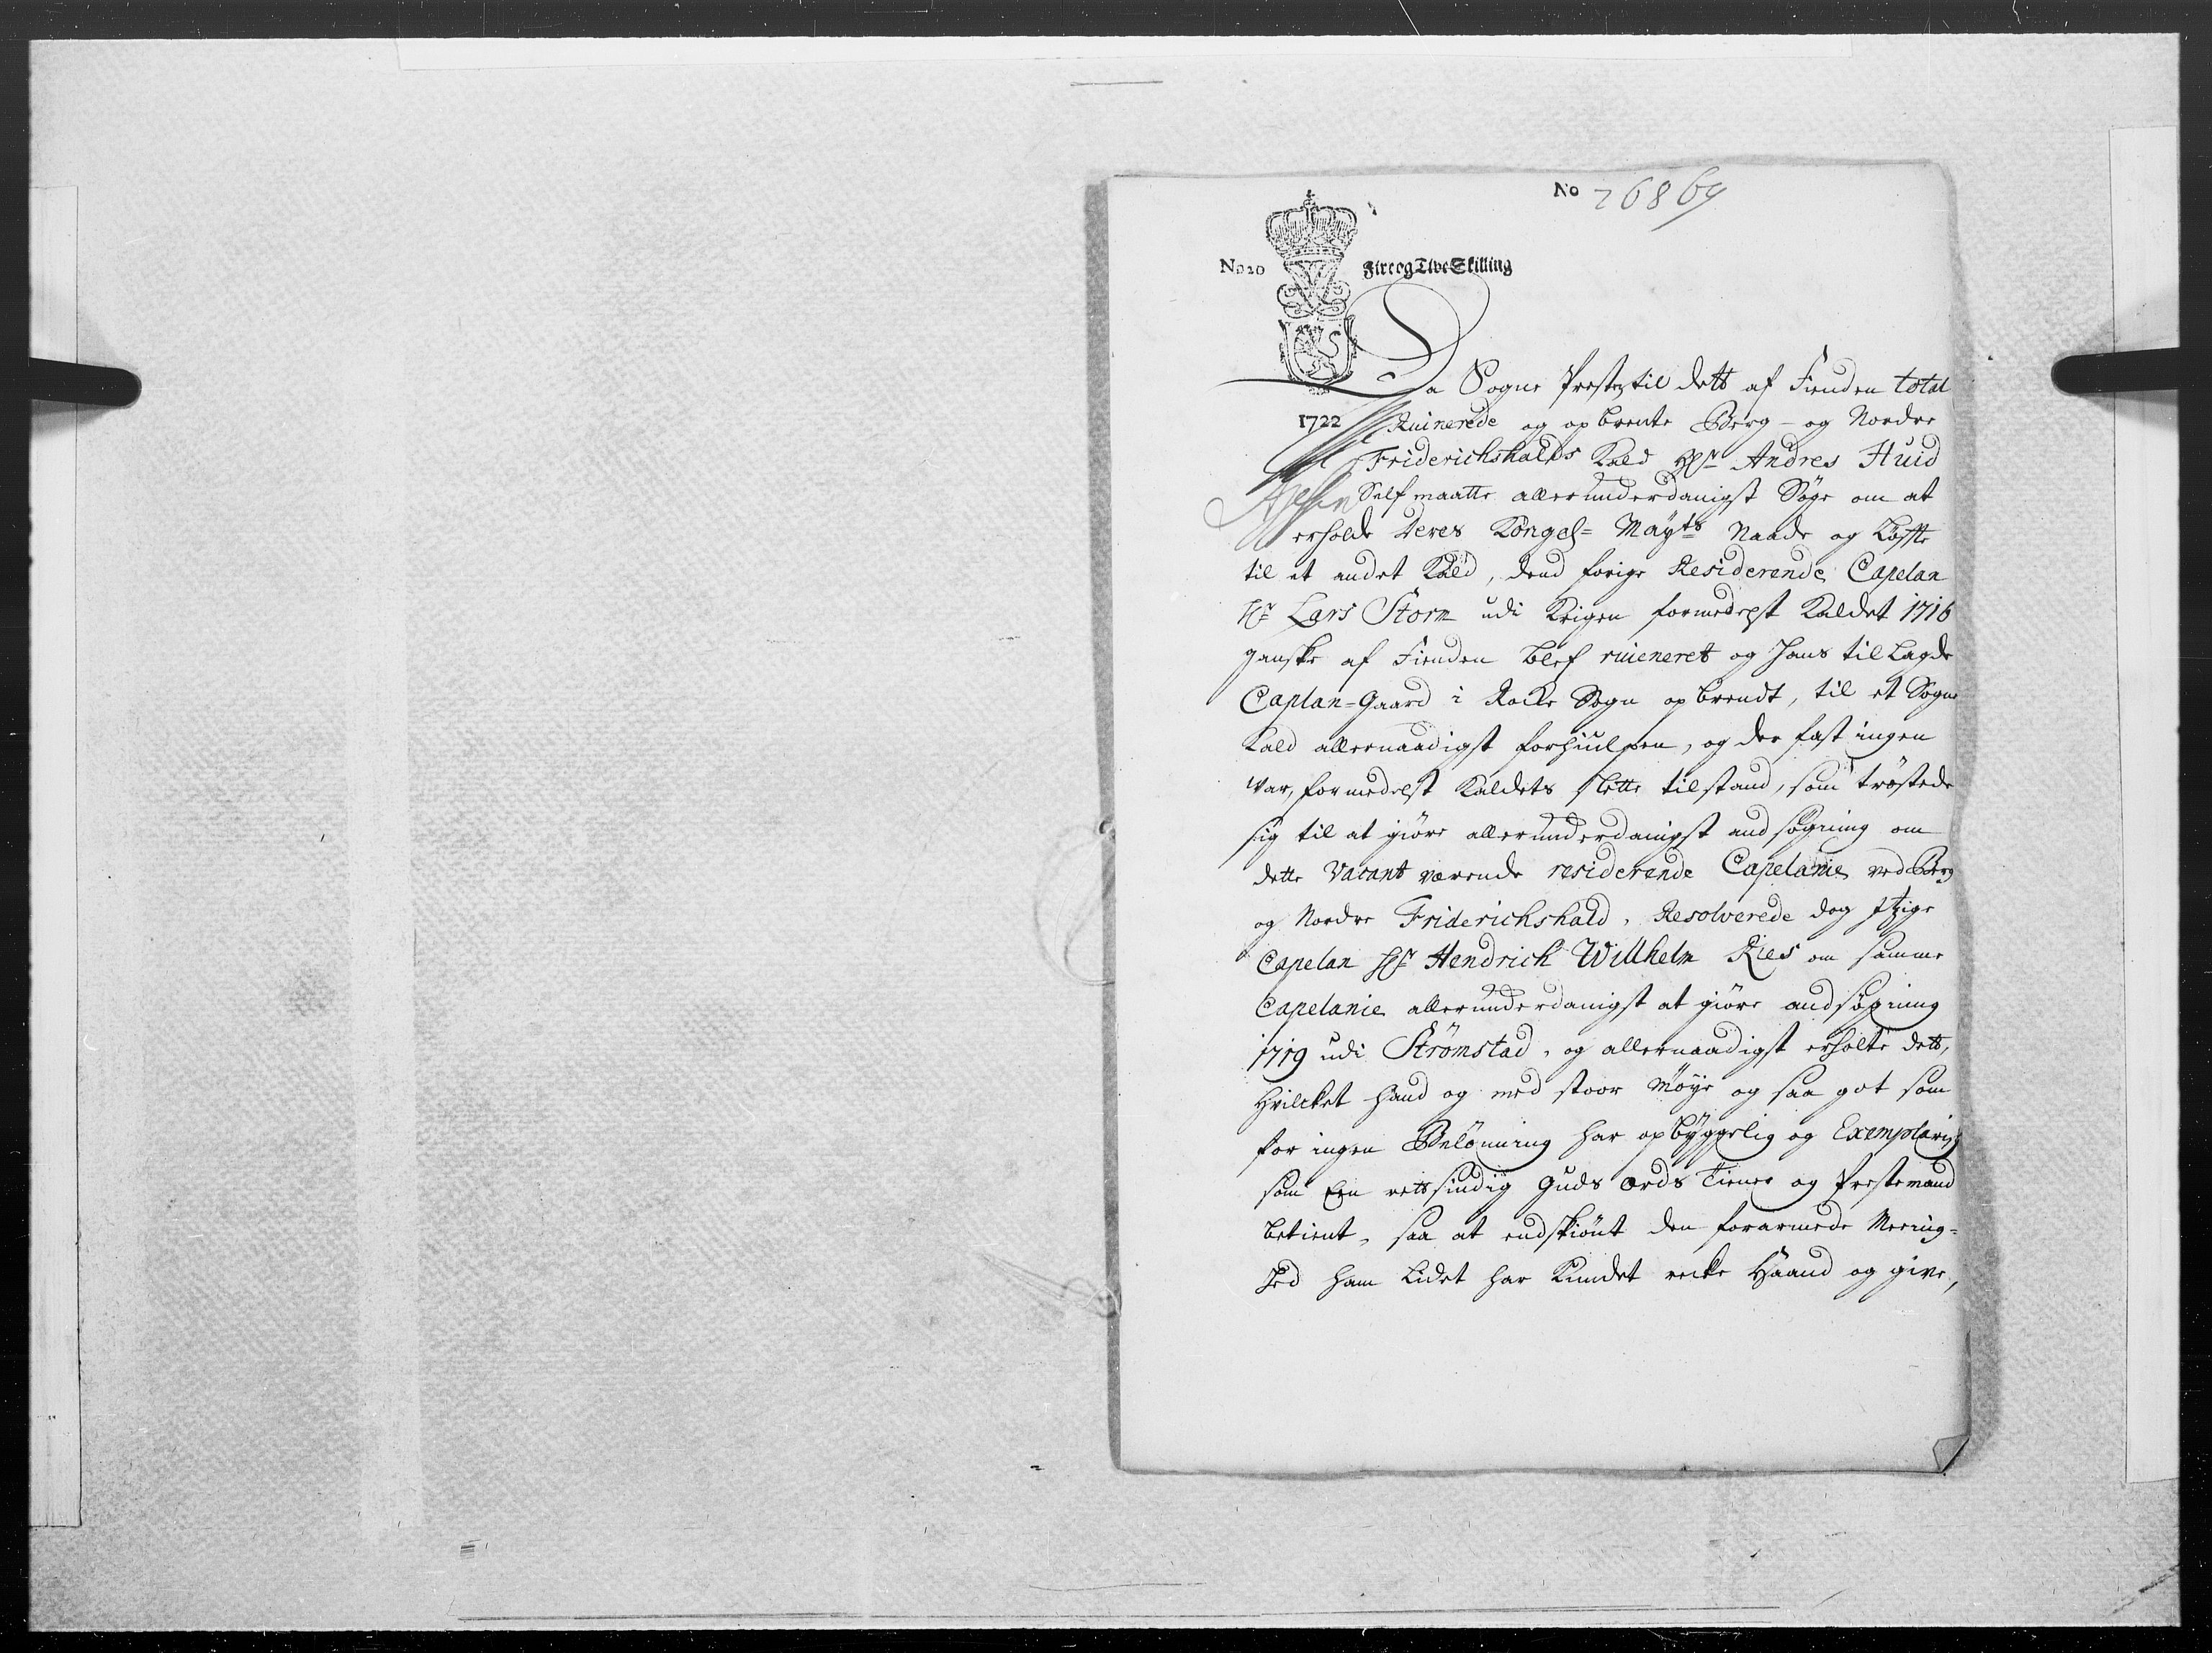 No 26869
No 20 Fire og Tive Skilling
Da Sogne Presten til dett af Fienden total
1722 Ruinerede og op brente Berg - og Nordre
Friderichshalds Kald Hr Andres Huid
Self maatte allerunderdanigst Søge om at
erholde Deres Kongel= Mayts Naade og Løffte
til et andet Kald, dend forige Residerende Capelan
Hr Lars Storm udi Krigen formedelst Kaldet 1716
gandske af Fienden blef ruineret og Hans til lagde
Caplan-Gaard i Rocke Sogn op brendt, til et Sogne
Kald allernaadigst forhiulpen, og der fast ingen
var, formedelst Kaldets slette tilstand, som trøstede
sig til at giøre allerunderdanigst andsøgning om
dette Vacant værende residerende Capelanie ved Berg
og Nordre Friderichshald, Resolverede dog itzige
Capelan Hr Hendrich Willhelm Ries om samme
Capelanie allerunderdanigst at giøre andsøgning
1719 udi Strømstad, og allernaadigst erholte dett,
Hvilcket hand og med stoor Møye og saa got som
for ingen Belønning har opbyggelig og Exemplarisch
som Een rettsindig Guds Ords Tiener og Prestemand
betient, saa at endskiønt den forarmede Meenig-
hed ham lidet har kundet recke Haand og give,